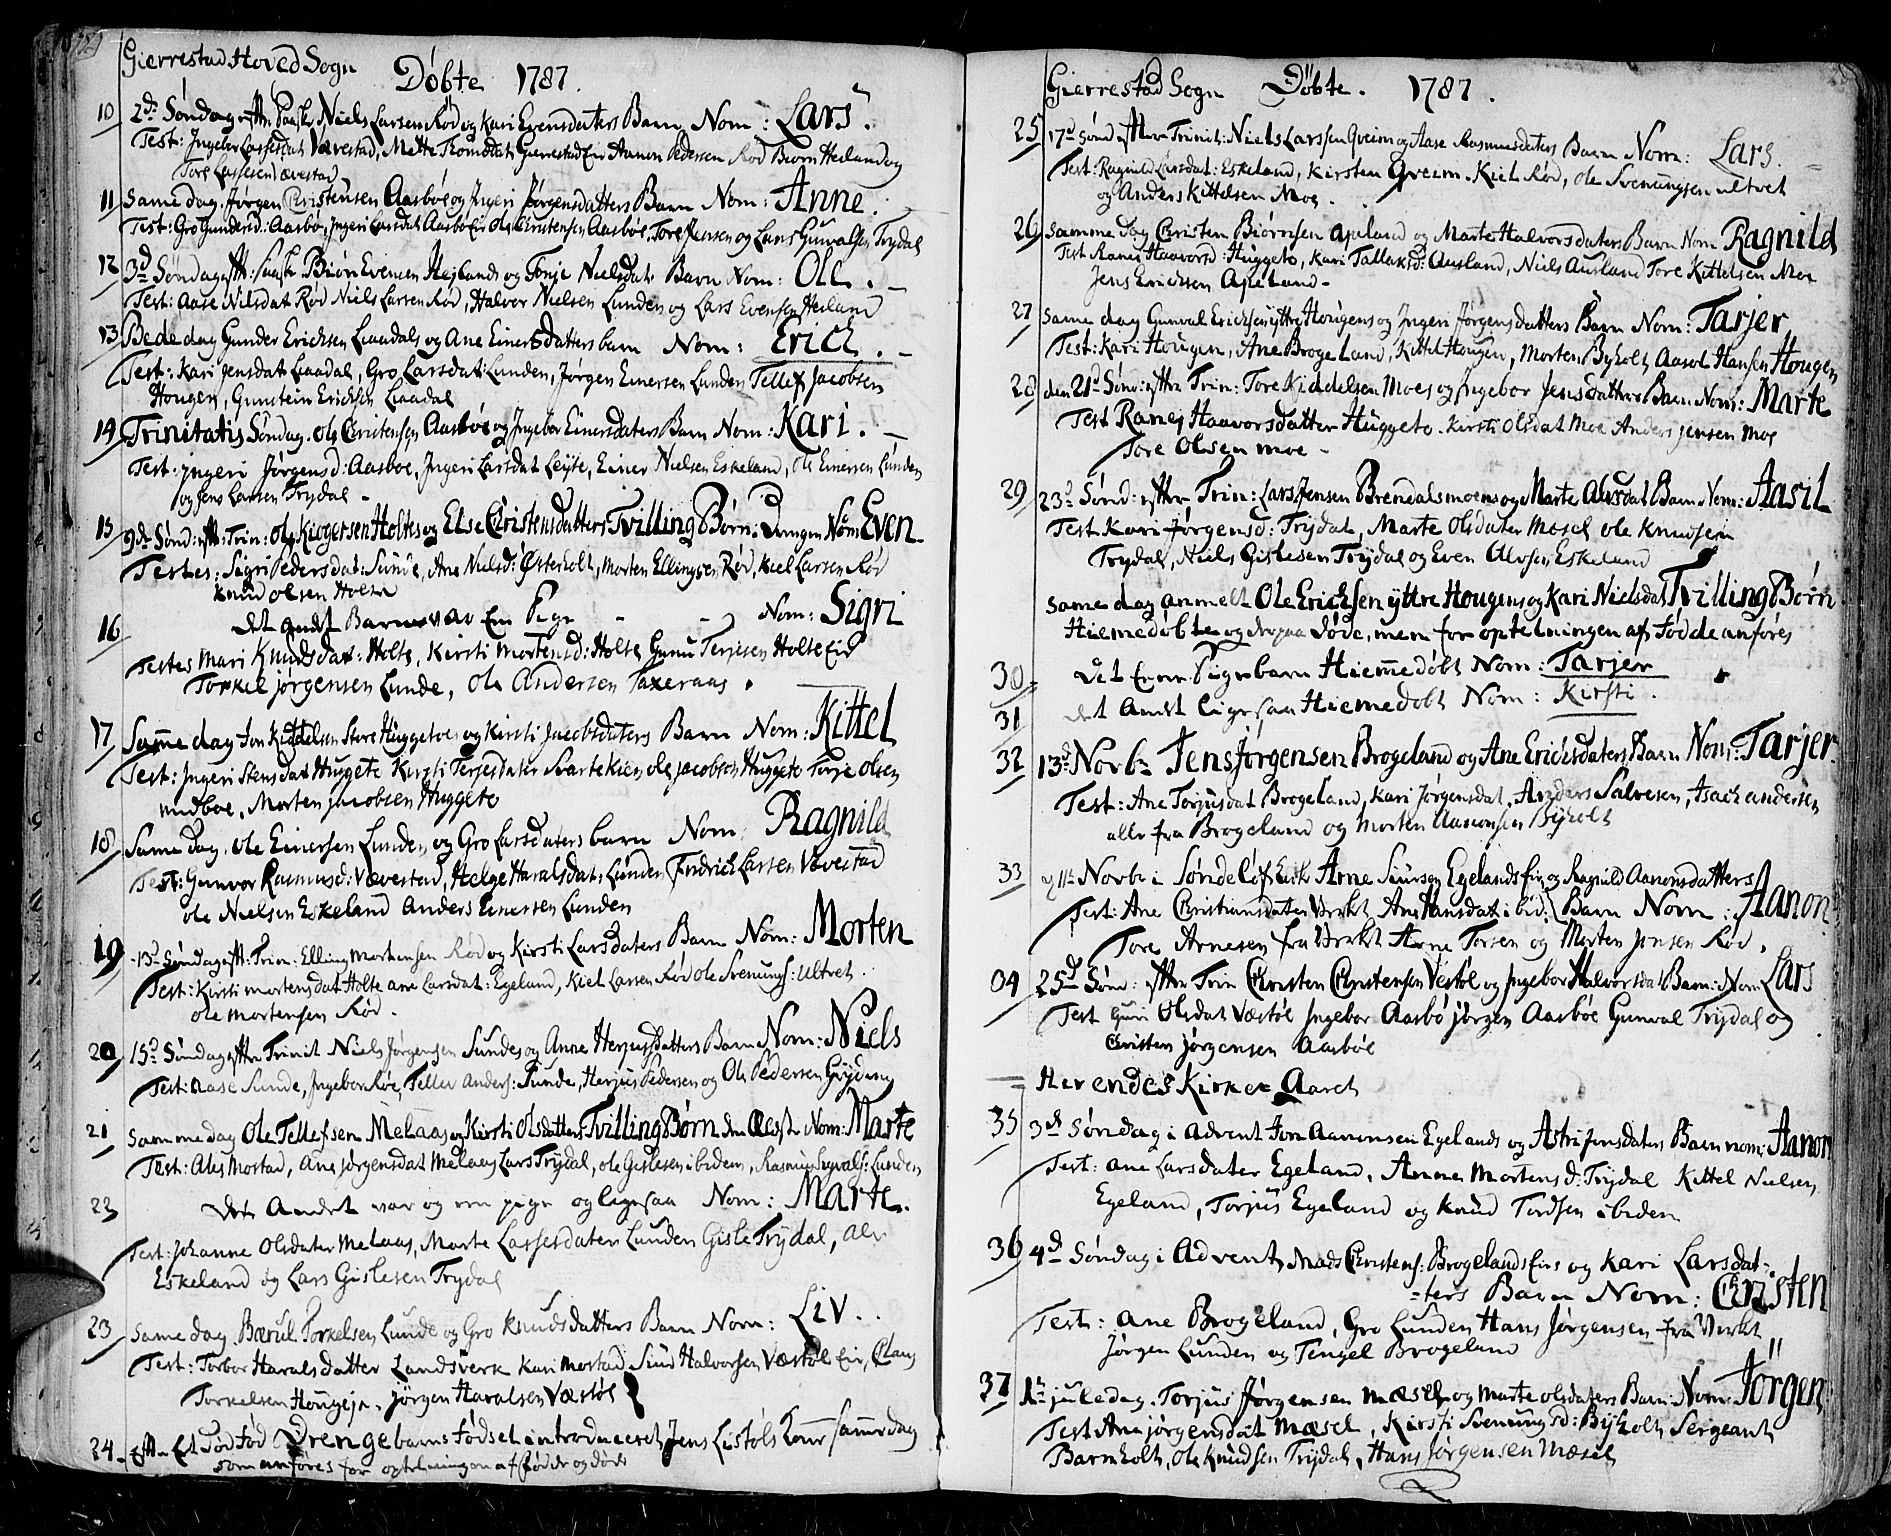 Gierrestad Hoved Sogn Døbte 1787.
10 2den Søndag efter Paaske Niels Larsen Rød og Kari Evensdaters Barn Nom: Lars.
Test: Ingebor Lassesdat Vævestad, Mette Thomasdat: Gierrestad Eier Aanon Pedersen Rød Biørn Heiland og
Tore Lassesen Vævestad
11 Same dag. Jørgen Christensen Aasbøe og Ingeri Jørgensdatters Barn Nom: Anne.
Test: Gro Gundersd: Aasbø, Ingeri Larsdat Aasbø Eir Ole Christensen Aasbøe, Tore Jensen og Lars Guwalsen Trydal
12 3d Søndag eft: Paaske Biørn Evensen Hejlands og Tonje Nielsdat Barn Nom: Ole. -
Test: Aase Nilsdat Rød Niels Larsen Rød, Halvor Nielsen Lunden og Lars Evensen Heiland
13 Bededag Gunder Ericksen Liaadals og Ane Einersdatters barn Nom: Erich. -
Test: Kari Jensdat Liaadal, Gro Larsdat: Lunden, Jørgen Einersen Lunden Tellef Jacobsen
Hougen, Gunstein Ericksen Liaadal
14 Trinitatis Søndag. Ole Christensen Aasbøe og Ingebor Einersdaters Barn Nom: Kari. -
Test: Ingeri Jørgensd: Aasboe, Ingeri Larsdat Leyte, Einer Nielsen Eskeland, Ole Einersen Lunden
og Jens Larsen Trydal -
15 9de Sønd: eft: Trin: Ole Kiøgersen Holtes og Else Christensdatters Tvilling Børn: Drengen Nom Even.
Testes: Sigri Pedersdat: Sunde, Ane Nielsd: Østerholt, Morten Ellingsen Rød, Kiel Larsen Rød
Knud Olsen Holte
16 Det andet Barn var En Pige - - Nom: Sigri
Testes Mari Knudsdat: Holte, Kirsti Mortensd: Holte Gunu Terjesen Holte Eir
Torkel Jørgensen Lunde, Ole Andersen Taxeraas.
17 Samme dag Jon Kiddelsen Store Huggetoes og Kirsti Jacobsdaters Barn Nom: Kittel
Test: Ingeri Stensdat Huggete Kirsti Terjesdater Svartekien Ole Jacobsen Huggete Torje Olsen
midboe, Morten Jacobsen Huggete
18 Same dag. Ole Einersen Lunden og Gro Larsdaters barn Nom: Ragnild
Test: Gunvor Rasmusd: Vævestad, Helge Haralsdat: Lunden Fridrich Larsen Vævestad
Ole Nielsen Eskeland Anders Einersen Lunden
19 13d Søndag eft: Trin: Elling Mortensen Rød og Kirsti Larsdaters Barn Nom: Morten
Test: Kirsti Mortensdat Holte Ane Larsdat: Egeland, Kiel Larsen Rød Ole Svenungs: Ultvet.
Ole Mortensen Rød.
20 15d Søndag efter Trinit Niels Jørgensen Sundes og Anne Herjusdatters Barn Nom: Niels
Test: Aase Sunde, Ingebor Røe, Tellef Anders: Sunde, Herjus Pedersen og Ole Pedersen Gryding
21 Samme dag Ole Tellefsen Melaas og Kirsti Olsdatters Tvilling Børn den Ældste Nom: Marte
Test: Ales Mostad, Ane Jørgensdat Melaas Lars Trydal, Ole Gislesen ibidem, Rasmus Ingvals: Lunden
22 Det Andet var og en pige og ligesaa Nom: Marte.
Test: Johanne Olsdater Melaas, Marte Lassesdater Lunden Gisle Trydal, Alv
Eskeland og Lars Gislesen Trydal
23 Same dag. Bærul Torkelsen Lunde og Gro Knudsdatters Barn Nom: Liv.
Test: Torbor Haralsdatter Landsverk Kari Mostad Siur Halvorsen Væstøl Eir, Olav
Torkelsen Hougeja. Jørgen Haralsen Væstøl
24. Efter Et Død fød Drengebarns Fødsel introduceret Jens Listøls Kone samme dag
som anføres for optelningen af Fødde og døde
Gierrestad Sogn Døbte. 1787.
25 17d Sønd efter Trinit: Niels Larssen Qveim og Aase Rasmusdaters Barn Nom: Lars.
Test: Ragnild Larsdat: Eskeland, Kirsten Qveim. Kiel Rød, Ole Svenungsen Ultvet
og Anders Kittelsen Moe.
26 Samme dag Christen Biørnsen Apeland og Marte Halvorsdaters Barn Nom Ragnild
Test Ranei Haavorsd: Huggeto, Kari Tallaksd: Ausland, Niels Ausland Tore Kittelsen Moe
Jens Ericksen Apeland -
27 Same dag Gunval Erichsen yttre Hougens og Ingeri Jørgensdatters Barn Nom: Tarjer
Test: Kari Hougen, Ane Brogeland, Kittel Hougen, Morten Byholt Aasol Hansen Hougen
28 den 21d Sønd: efter Trin: Tore Kiddelsen Moes og Ingebor Jensdatters Barn Nom: Marte
Test Ranei Haavorsdatter Huggeto. Kirsti Olsdat Moe Anders Jensen Moe
Tore Olsen Moe -
29 23d Sønd: efter Trin: Lars Jensen Brendalsmoens og Marte Alvsdat Barn Nom: Aasil
Test Kari Jørgensd: Trydal, Marte Olsdater Mosel Ole Knudsen
Trydal, Niels Gislesen Trydal og Even Alvsen Eskeland
Same dag anmelt Ole Erichsen yttre Hougens og Kari Nielsdat Tvilling Børn
Hiemedøbte og derpaa døde, men for optelningen af Fødde anføres
30 Det Ene Pigebarn Hiemmedøbt Nom: Tarjer
31 det Andet ligesaa Hiemedøbt Nom: Kirsti.
32 13d Novbr Jens Jørgensen Brogeland og Ane Erichsdaters Barn Nom: Tarjer.
Test: Ane Torjusdat Brogeland, Kari Jørgensdat, Anders Salvesen, Isach Andersen
alle fra Brogeland og Morten Aanonsen Byholt
33 11te Novbr i Søndeløf Kirk Arne Siursen Egelands Eir og Ragnild Aanonsdatters
Test: Ane Christiansdater Værket Ane Hansdat ibid: Barn Nom: Aanon
Tore Arnesen fra Værket Arne Torsen og Morten Jensen Rød.
34 25d Sønd: efter Trin Christen Christensen Vestøl og Ingebor Halvorsdat Barn: Nom Lars
Test Guri Olsdat Væstøl Ingebor Aasbø Jørgen Aasbøe Gunwal Trydal og
Christen Jørgensen Aasbøe
Her endes Kirke Aaret
35 3de Søndag i Advent Jon Aanonsen Egelands og Astri Jensdaters Barn nom: Aanon
Test: Ane Larsdater Egeland, Anne Mortensd: Trydal Kittel Nielsen
Egeland, Torjus Egeland og Knud Tordsen ibidem
36 4d Søndag i Advent, Mads Christens: Brogelands Eirs og Kari Larsdat-
=ters Barn Nom: Christen
Test: Ane Brogeland, Gro Lunden Hans Jørgensen fra Værket
Jørgen Lunden og Tengel Brogeland
37 1te juledag. Torjus Jørgensen Mæsel og Marte Olsdaters Barn: Nom: Jørgen
Test Ane Jørgensdat Mæsel, Kirsti Svenungsd: Byholt Sergeant
Barnholt, Ole Knudsen Trydal, Hans Jørgensen Mæsel